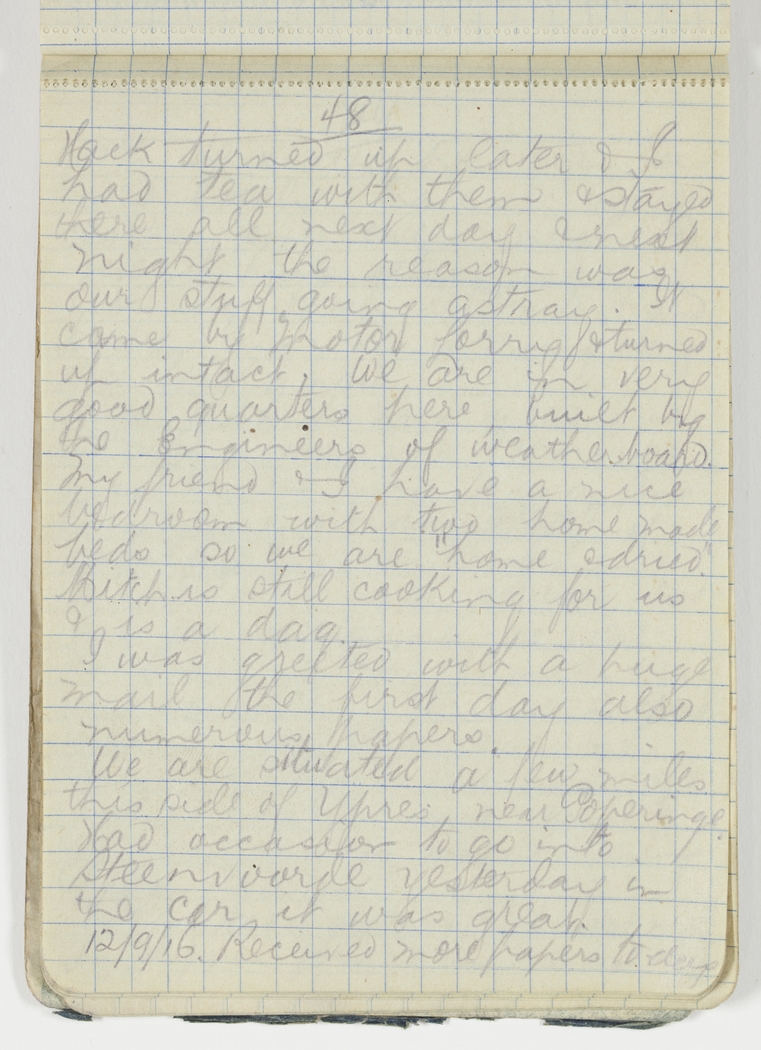 48
Hack turned up later & I
had tea with them & stayed
there all next day & next
night the reason was
our stuff going astray. It
came by motor lorry & turned
up intact. We are in very
good quarters here built by
the Engineers of weatherboard.
My friend & I have a nice
bedroom with two home made
beds so we are "home & dried".
Mitch is still cooking for us
& is a dag.
I was greeted with a huge
mail the first day also
numerous papers.
We are situated a few miles
this side of Ypres near Poperinge.
Had occasion to go into
Steenvoorde yesterday in
the car it was great.
12/9/16. Received more papers to-day